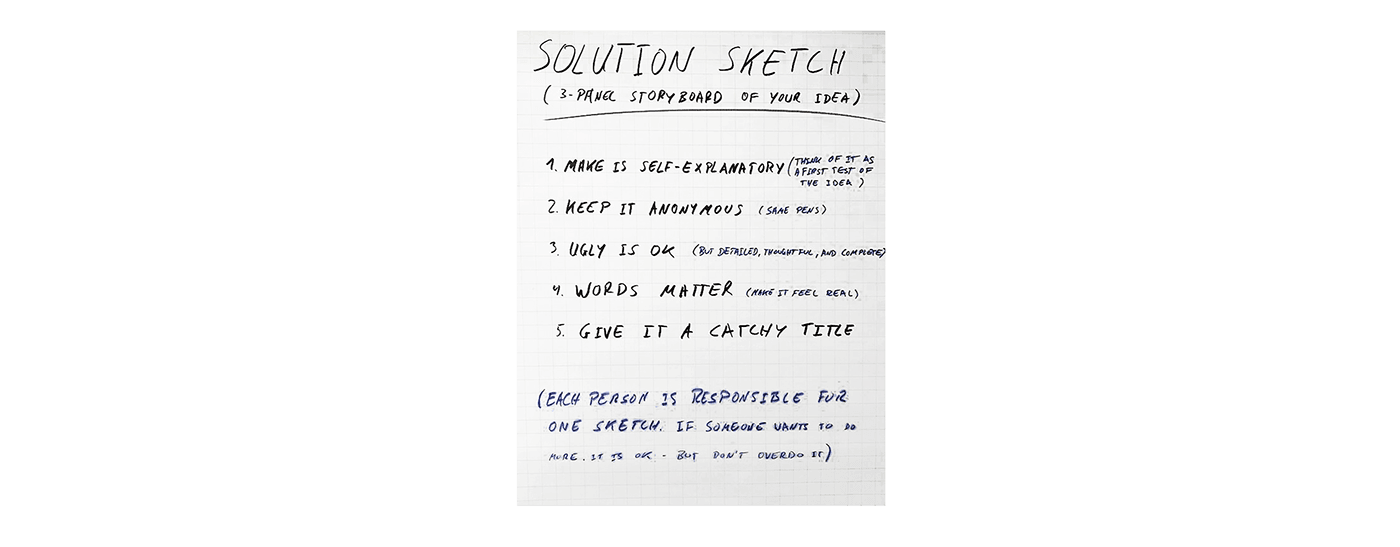 SOLUTION SKETCH
(3-PANEL STORYBOARD OF YOUR IDEA)
1. MAKE IS SELF-EXPLANATORY (THINK OF IT AS
A FIRST TEST OF
THE IDEA)
2. KEEP IT ANONYMOUS (SAME PENS)
3. UGLY IS OK (BUT DETAILED, THOUGHTFUL, AND COMPLETE)
4. WORDS MATTER (MAKE IT FEEL REAL)
5. GIVE IT A CATCHY TITLE
(EACH PERSON IS RESPONSIBLE FOR
ONE SKETCH. IF SOMEONE WANTS TO DO
MORE. IT IS OK - BUT DON'T OVERDO IT)